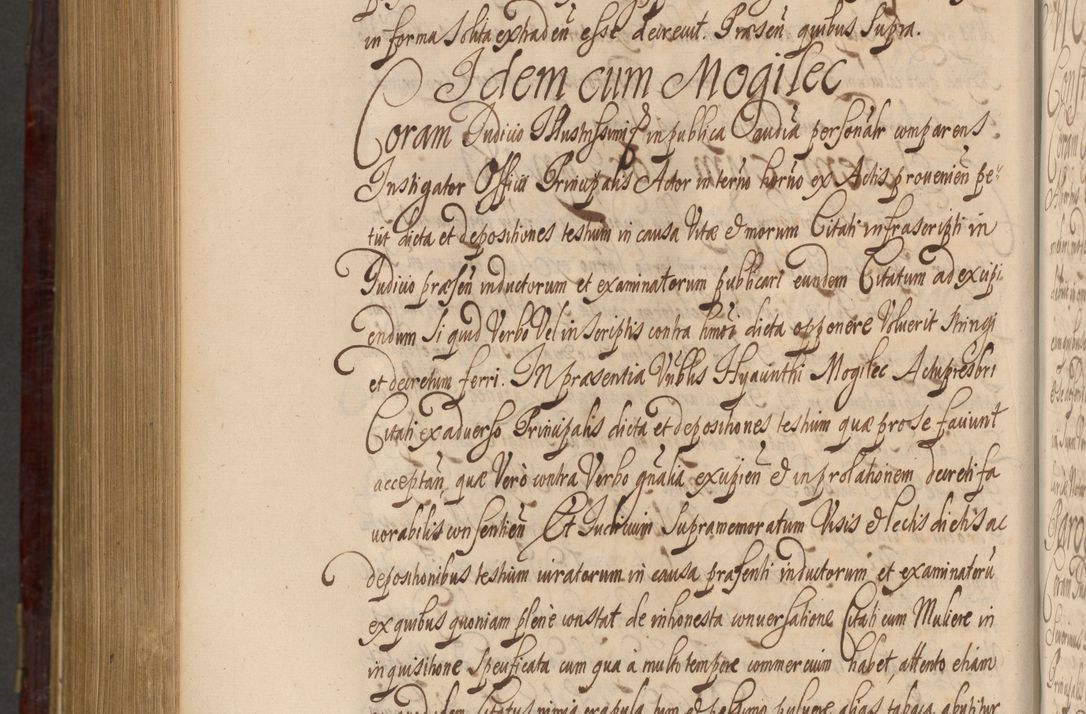 in forma solita extraden̄ esse decrevit. Præsen̄ quibus supra.
Idem cum Mogilec
Coram Judicio Illustrissimi in publica Audīa personalr comparens
Instigator Officii Principalis Actor in terīno horno ex Actis provenien̄ pe-
tiit dicta et depositiones testium in causa Vitæ & morum Citati infrascripti in
Judicio præsen̄ inductorum et examinatorum publicari eundem Citatum ad excipi
endum si quid Verbo Vel in scriptis contra hmōi dicta opponere Voluerit stringi
et decretum ferri. In præsentia Vnblis Hyacinthi Mogilec Actupresbri
Citati ex adverso Principalis dicta et depositiones testium quæ pro se faciunt
acceptan̄, quæ Verò contra Verbo gn̄alia excipien̄ & in prolationem decreti fa
vorabilis consentien̄ Et Judicium supramemoratum Visis & lectis dictis ac
depositionibus testium iuratorum in causa præsenti inductorum et examinatorū
ex quibus quoniam plenè constat de inhonesta conversatione Citati cum Muliere in
inquisitione specificata cum qua à multo tempore commercium habet, attento etiam
Citatus nimia crapula tum & pessimo pulvere alias tabaca abutitur